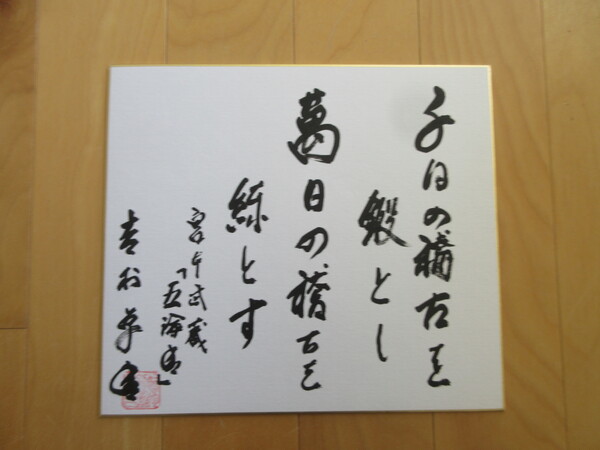 千日の稽古を
鍛とし
萬日の稽古を
練とす
宮本武蔵
「五輪書」